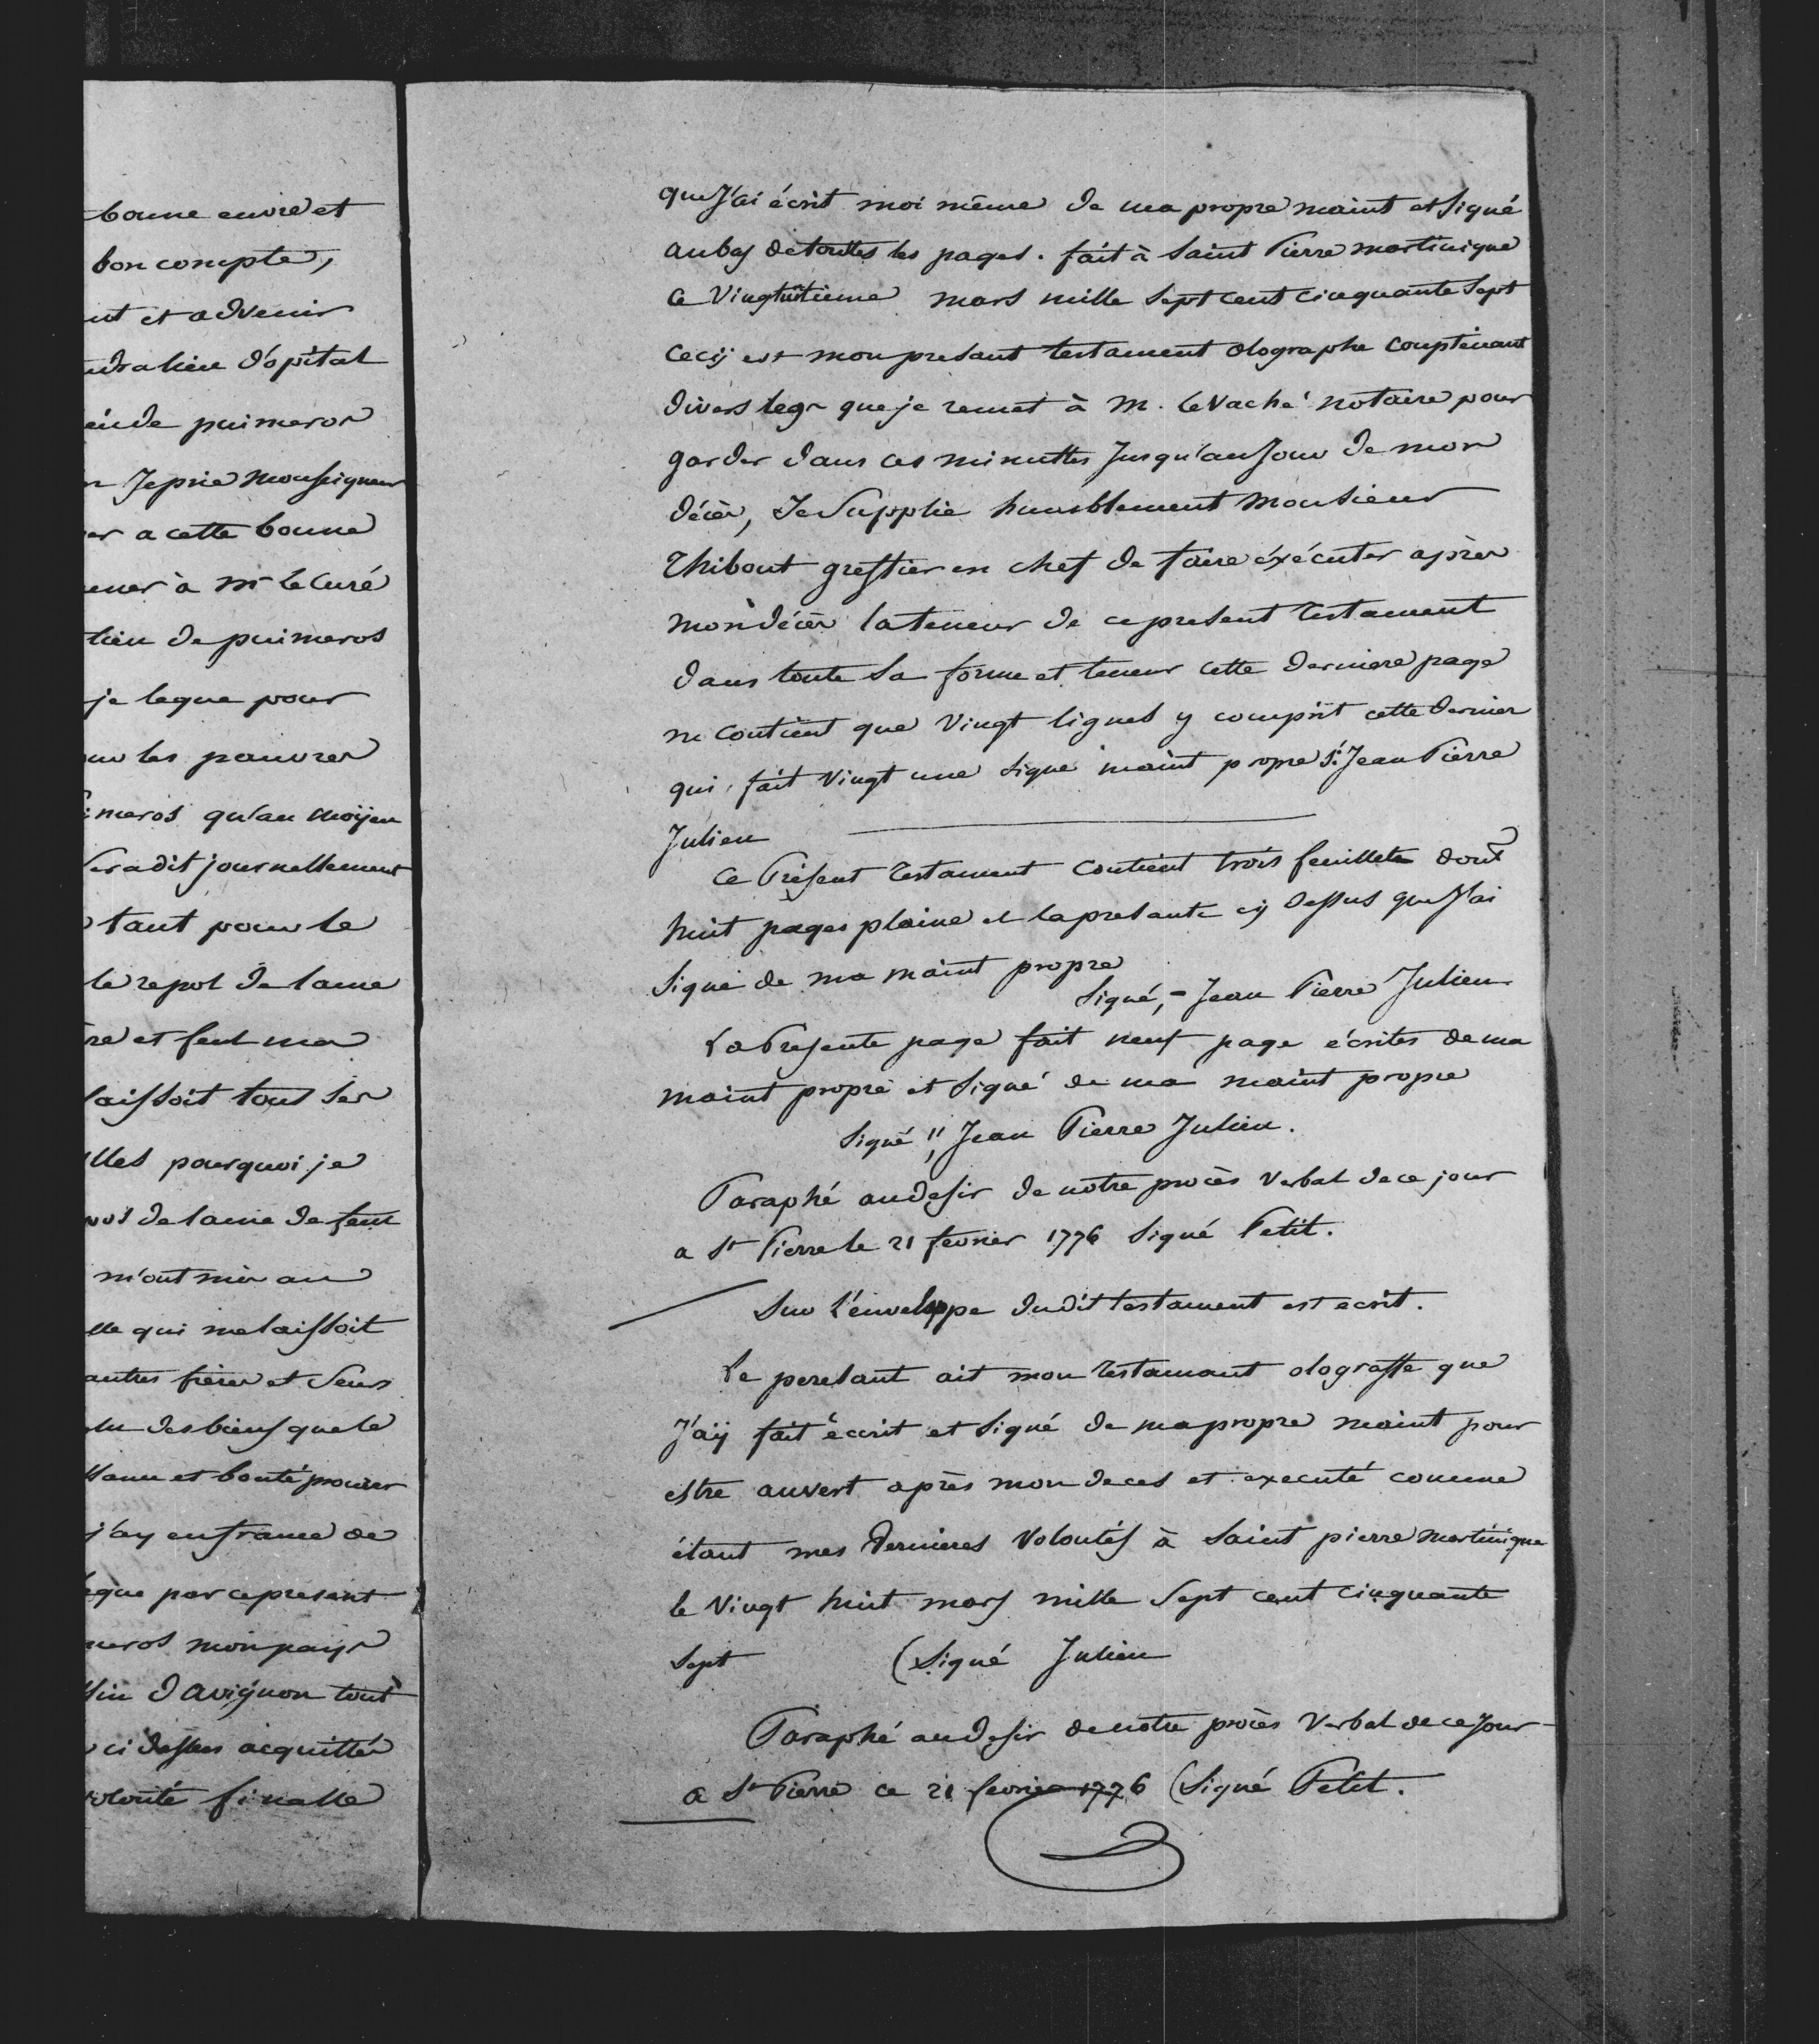 bonne euvre et
bon compte,
nt et advenir
d'opital
puimeros
Je prie Monseigneur
er a cette bonne
à mr le Curé
lieu de puimeros
je legue pour
les pauvres
meros qu'au moÿen
sera dit journellement
tant pour le
le repos de lame
re et feul ma
laissoit tous ses
lles pourquoi je
de lame de feut
m'ont mis au
lle qui me laissoit
autres frères et Seurs
des biens que le
et bonté procurer
j'ay en france de
legue par ce presant
meros mon paijs
sin d'avignon tout
ci dessus acquittés
volonté finalle
que J'ai écrit moi même de ma propre maint et Signé
au bas de touttes les pages. fait à Saint Pierre martinique
Ce Vingtuitieme mars mille Sept cent Cinquante Sept
Cecij est mon presant testament olographe Couptenant
divers legs que je remet à M. Levaché notaire pour
garder dans ces minuttes Jusqu'au Jour de mon
décès, Je Supplie humblement Monsieur
Thibout greffier en chef de faire éxécuter après
mon décès la teneur de ce present Testament
dans toute Sa forme et teneur cette derniere page
ne Contient que Vingt lignes y comprit cette dernier
qui fait Vingt une Signé maint propre S.é Jean Pierre
Julien
Ce Présent Testament Contient trois feuillets dont
huit pages plaine et la presante cÿ dessus que J'ai
Signé de ma maint propre
Signé, = Jean Pierre Julien
La Presente page fait neuf page écrites de ma
maint propre et Signé de ma maint propre
Signé ,, Jean Pierre Julien.
Paraphé au desir de notre procès Verbal de ce jour
a St Pierre le 21 fevrier 1776 Signé Petit.
Sur L'enveloppe dudit testament est ecrit.
Le peresant ait mon testamant olograffe que
J'aÿ fait écrit et Signé de ma propre maint pour
estre auvert après mon deces et executé comme
étant mes dernieres Volontés à Saint pierre martinique
le Vingt huit mars mille Sept cent Cinquante
Sept (Signé Julien
Paraphé au desir de notre procès Verbal de ce Jour
a St Pierre ce 21 fevrier 1776 (Signé Petit.